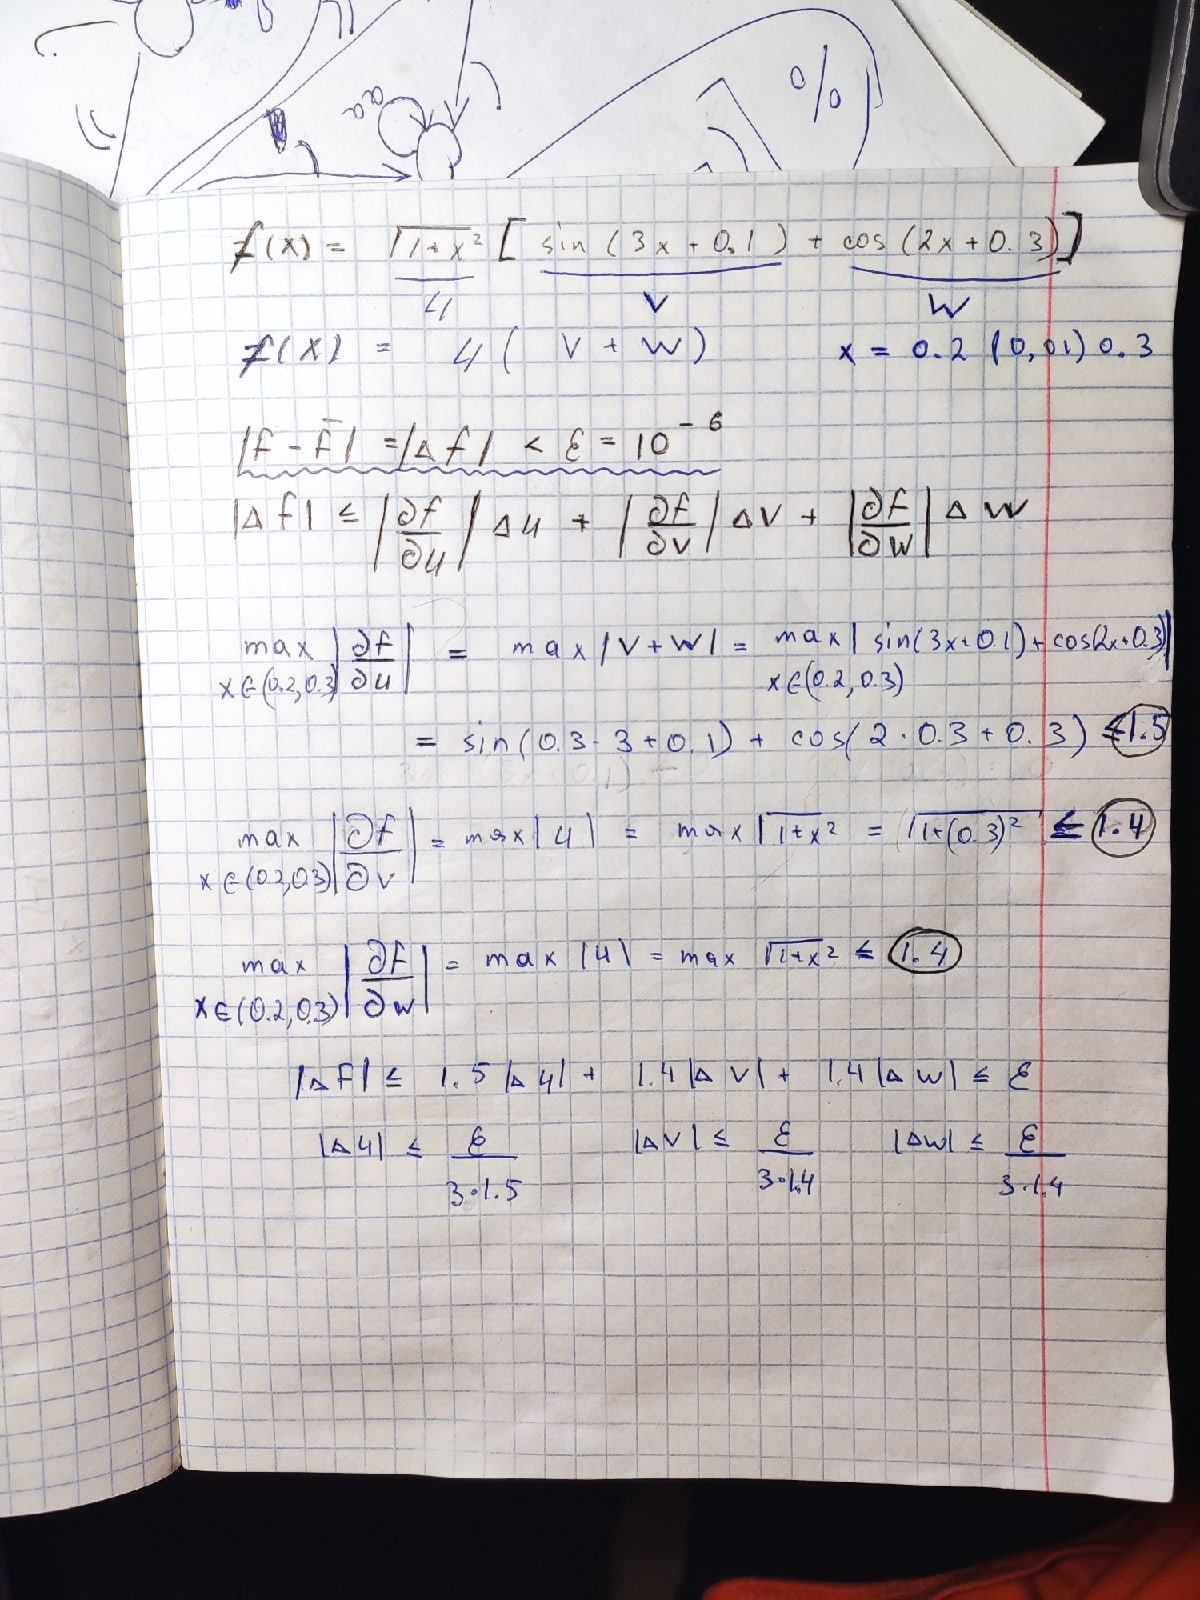 aa
%
f(x) = √1+x² [ sin (3x + 0.1) + cos (2x + 0.3)]
u v w
f(x) = u ( v + w) x = 0.2 (0,01) 0.3
|f - f̄| = |Δf| < ε = 10⁻⁶
|Δf| ≤ |∂f/∂u| Δu + |∂f/∂v| Δv + |∂f/∂w| Δw
max |∂f/∂u| = max |v+w| = max | sin(3x+0.1) + cos(2x+0.3)|
x∈(0.2,0.3) x∈(0.2,0.3)
= sin(0.3·3+0.1) + cos(2·0.3+0.3) ≤ 1.5
max |∂f/∂v| = max |u| = max √1+x² = √1+(0.3)² ≤ 1.4
x∈(0.2,0.3)
max |∂f/∂w| = max |u| = max √1+x² ≤ 1.4
x∈(0.2,0.3)
|Δf| ≤ 1.5 |Δu| + 1.4 |Δv| + 1.4 |Δw| ≤ ε
|Δu| ≤ ε/3·1.5 |Δv| ≤ ε/3·1.4 |Δw| ≤ ε/3·1.4